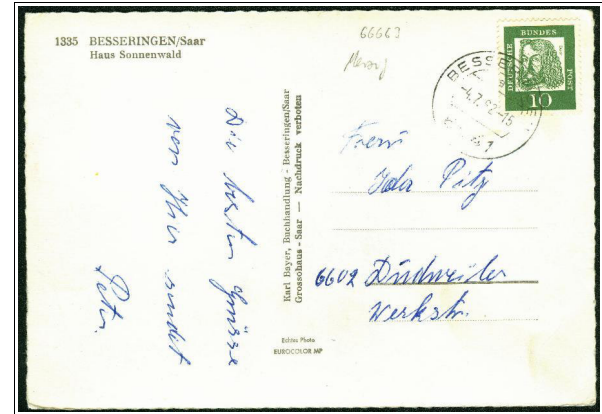 1335 BESSERINGEN/Saar
Haus Sonnenwald
66663
Merzig
DEUTSCHE BUNDES POST
10
BESS
-4.7.62-15
Die besten Grüsse
von Ihr sendet
Peter
Karl Bayer, Buchhandlung - Besseringen/Saar
Grossohaus - Saar — Nachdruck verboten
Echtes Photo
EUROCOLOR MP
Frau
Ida Pitz
6602 Dudweiler
Werkstr.